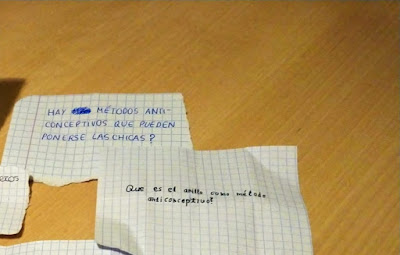 HAY MÉTODOS ANTI-
CONCEPTIVOS QUE PUEDEN
PONERSE LAS CHICAS?
Que es el anillo como método
anticonceptivo?